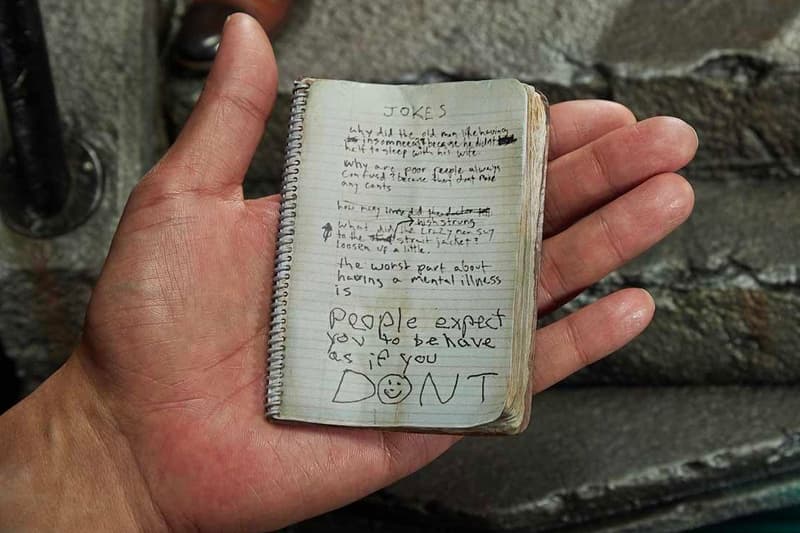 JOKES
why did the old man like having
insomneea? because he didnt
haft to sleep with his wife.
why are poor people always
confused? because they dont make
any cents
how many did the doctor
high strung
what did the crazy man say
to the strait jacket?
loosen up a little.
the worst part about
having a mental illness
is
people expect
you to behave
as if you
DONT